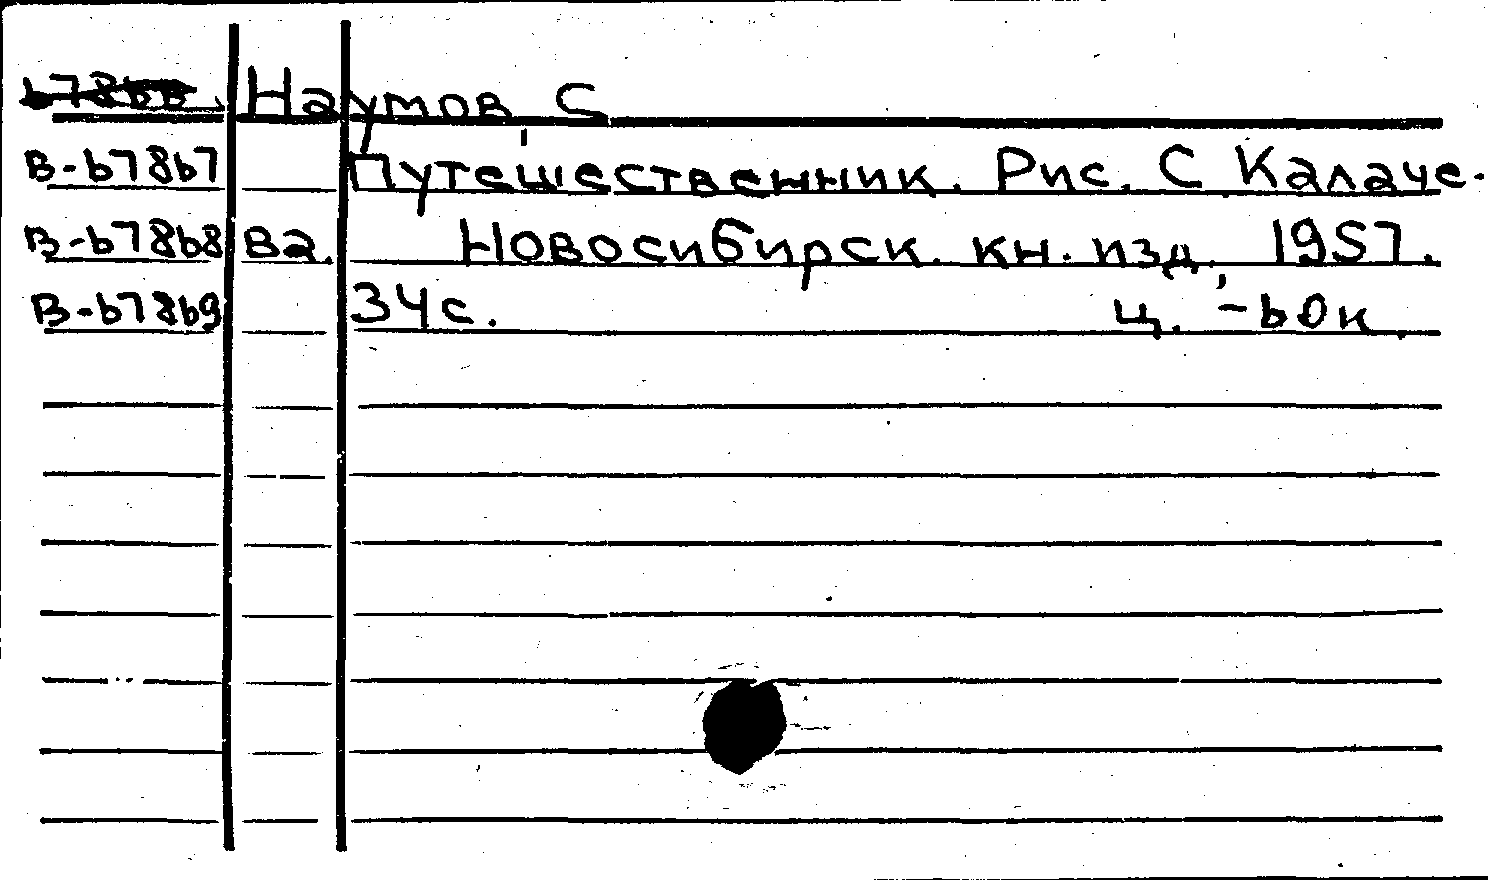 Наумов С
В-67867 Путешественник. Рис. С Калаче-
В-67868 Ва. Новосибирск. кн. изд, 1957.
В-67869 34с. ц. -60к